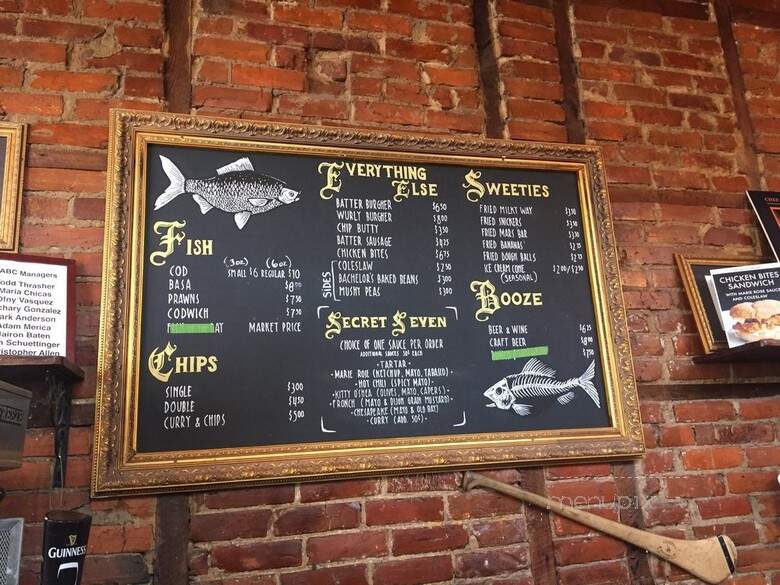 ABC Managers
Todd Thrasher
Maria Chicas
Zachary Gonzalez
Mark Anderson
Adam Merica
Jairon Baten
Schuettinger
Christopher Allen
FISH
(3oz) (6oz)
COD SMALL $6 REGULAR $10
BASA $8.00
PRAWNS $7.50
CODWICH $7.50
AY MARKET PRICE
CHIPS
SINGLE $3.00
DOUBLE $4.50
CURRY & CHIPS $5.00
EVERYTHING
ELSE
BATTER BURGHER $6.50
WURLY BURGHER $8.00
CHIP BUTTY $3.50
BATTER SAUSAGE $4.25
CHICKEN BITES $6.75
SIDES
COLESLAW $2.50
BACHELOR'S BAKED BEANS $3.00
MUSHY PEAS $3.00
SECRET SEVEN
CHOICE OF ONE SAUCE PER ORDER
ADDITIONAL SAUCES 50¢ EACH
- TARTAR -
- MARIE ROSE (KETCHUP, MAYO, TABASCO) -
- HOT CHILI (SPICY MAYO) -
- KITTY O'SHEA (OLIVES, MAYO, CAPERS) -
- FRONCH (MAYO & DIJON GRAIN MUSTARD) -
- CHESAPEAKE (MAYO & OLD BAY) -
- CURRY (ADD 50¢) -
SWEETIES
FRIED MILKY WAY $3.50
FRIED SNICKERS $3.50
FRIED MARS BAR $3.50
FRIED BANANAS $2.75
FRIED DOUGH BALLS $2.75
ICE CREAM CONE $2.00/$2.50
(SEASONAL)
BOOZE
BEER & WINE $6.25
CRAFT BEER $8.00
$7.50
CHICKEN BITES
SANDWICH
WITH MARIE ROSE SAUCE
AND COLESLAW
GUINNESS
menupix